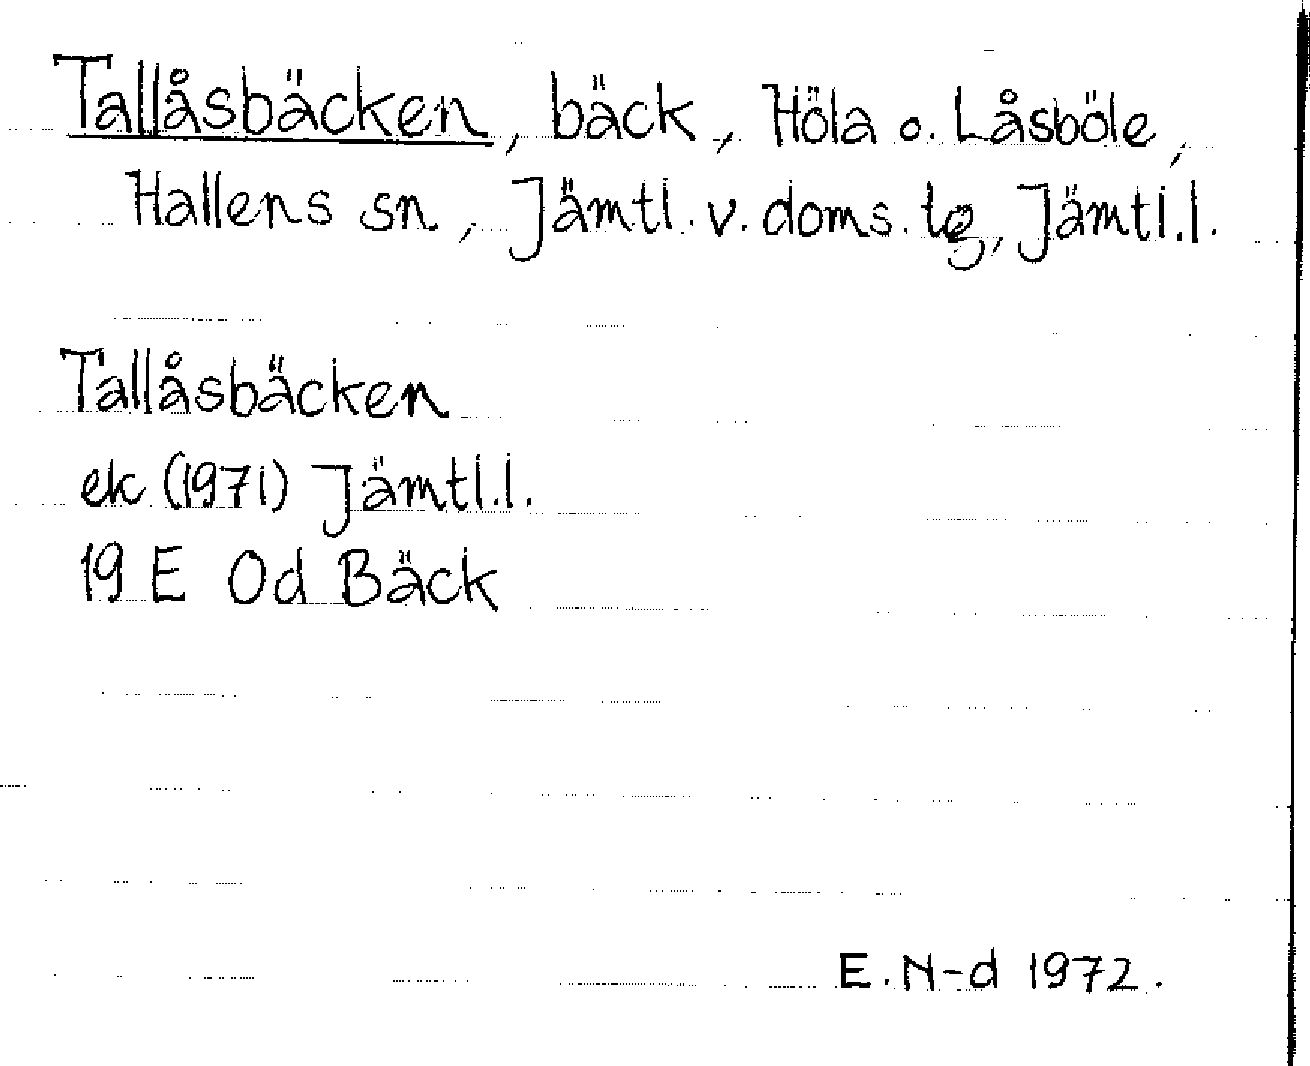 Tallåsbäcken, bäck, Höla o. Låsböle,
Hallens sn, Jämtl. v. doms. tg, Jämtl.l.
Tallåsbäcken
ek (1971) Jämtl.l.
19 E 0d Bäck
E. N-d 1972.